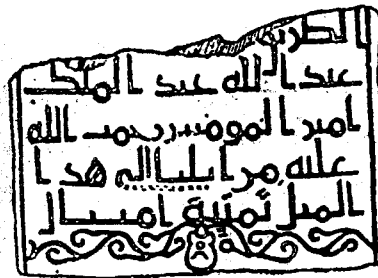 الطريق
عبد الله عبد الملك
امير المومنين رحمت الله
عليه من ايليا الى هذا
الميل ثمنية اميال